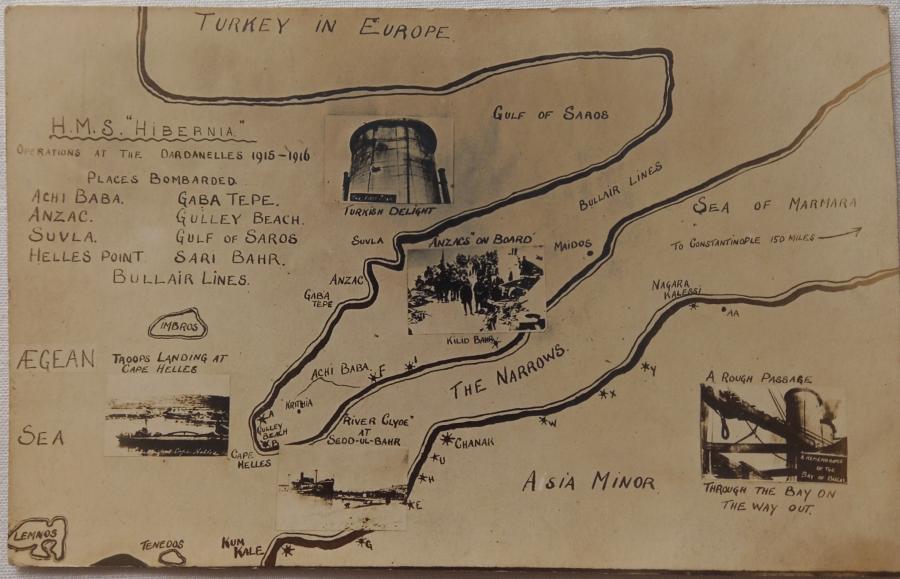 TURKEY IN EUROPE
H.M.S. "HIBERNIA"
OPERATIONS AT THE DARDANELLES 1915-1916
PLACES BOMBARDED.
ACHI BABA. GABA TEPE.
ANZAC. GULLEY BEACH.
SUVLA. GULF OF SAROS
HELLES POINT SARI BAHR.
BULLAIR LINES.
GULF OF SAROS
TURKISH DELIGHT
BULLAIR LINES
SEA OF MARMARA
TO CONSTANTINOPLE 150 MILES
SUVLA
"ANZACS" ON BOARD
MAIDOS
ANZAC
GABA TEPE
NAGARA KALESSI
AA
IMBROS
KILID BAHR
ÆGEAN
SEA
TROOPS LANDING AT
CAPE HELLES
ACHI BABA
F
I
THE NARROWS.
Y
X
W
A ROUGH PASSAGE
A REMEMBRANCE
OF THE
BAY OF BISCAY
THROUGH THE BAY ON
THE WAY OUT.
KRITHIA
A
GULLEY
BEACH
B
"RIVER CLYDE"
AT
SEDD-UL-BAHR
CHANAK
U
H
E
CAPE
HELLES
ASIA MINOR
LEMNOS
TENEDOS
KUM
KALE
G